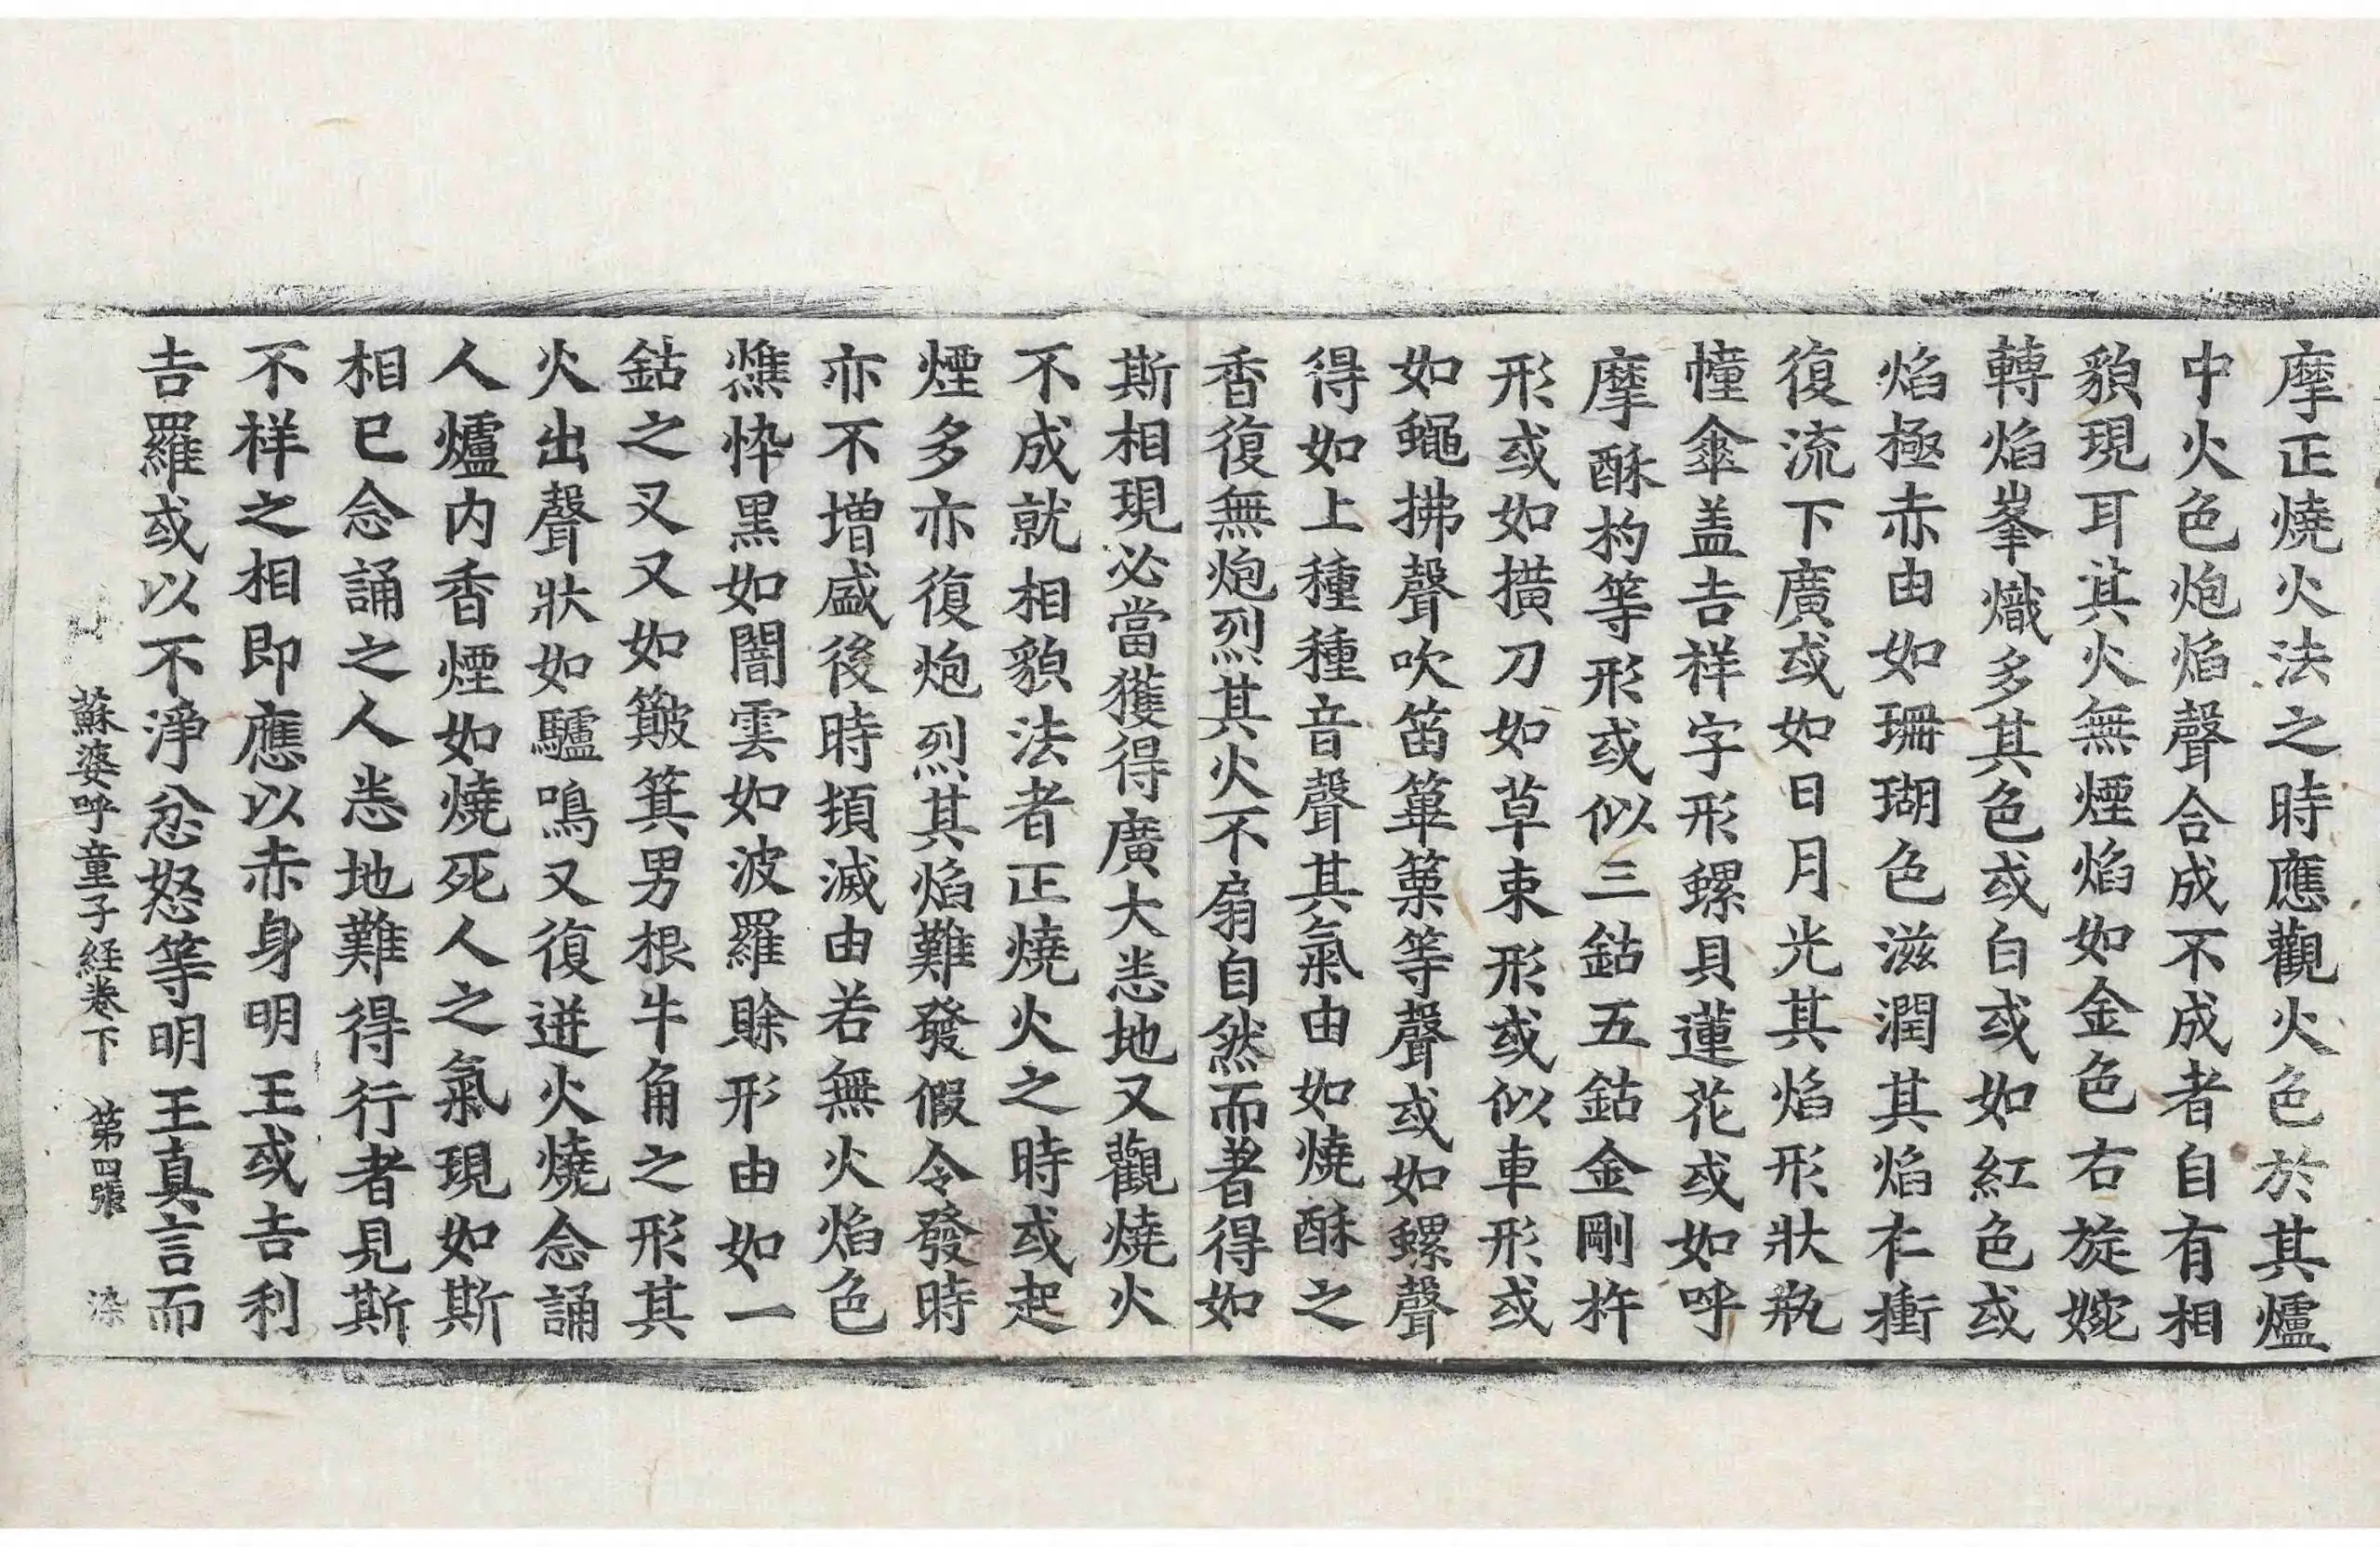 摩正燒火法之時應觀火色於其爐
中火色炮焰聲合成不成者自有相
貌現耳其火無煙焰如金色右旋婉
轉焰峯熾多其色或白或如紅色或
焰極赤由如珊瑚色滋潤其焰上衝
復流下廣或如日月光其焰形狀瓶
幢傘盖吉祥字形螺貝蓮花或如呼
摩酥杓等形或似三鈷五鈷金剛杵
形或如撗刀如草束形或似車形或
如蠅拂聲吹笛篳篥等聲或如螺聲
得如上種種音聲其氣由如燒酥之
香復無炮烈其火不扇自然而著得如
斯相現必當獲得廣大悉地又觀燒火
不成就相貌法者正燒火之時或起
煙多亦復炮烈其焰難發假令發時
亦不增盛後時頓滅由若無火焰色
燋忰黑如闇雲如波羅賖形由如一
鈷之叉又如簸箕男根牛角之形其
火出聲狀如驢鳴又復迸火燒念誦
人爐内香煙如燒死人之氣現如斯
相已念誦之人悉地難得行者見斯
不祥之相即應以赤身明王或吉利
吉羅或以不淨忿怒等明王真言而
蘇婆呼童子経卷下 第四張 染